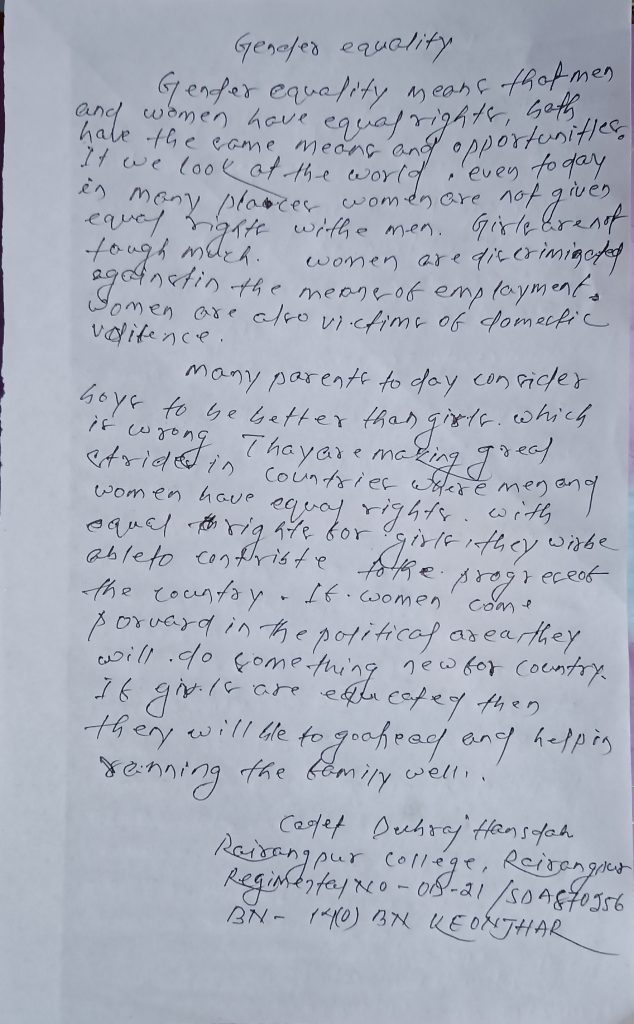 Gender equality
Gender equality means that men
and women have equal rights, both
have the same means and opportunities.
If we look at the world, even today
in many places women are not given
equal rights withe men. Girls are not
tough much. women are discriminated
againstin the means of employment.
women are also victims of domestic
violence.
Many parents to day consider
boys to be better than girls. which
is wrong. Thay are making great
strides in countries where men and
women have equal rights. with
equal rights for girls, they wirbe
ableto contribte to the progreceof
the country. If women come
porward in the political area, they
will do something new for country.
If girls are educated then
they will ble to goahead and helpin
ranning the family well.
Cadet Dubraj Hansdah
Rairangpur College, Rairangpur
Regimental No - OD-21/SDA870256
BN - 14(O) BN KEONJHAR